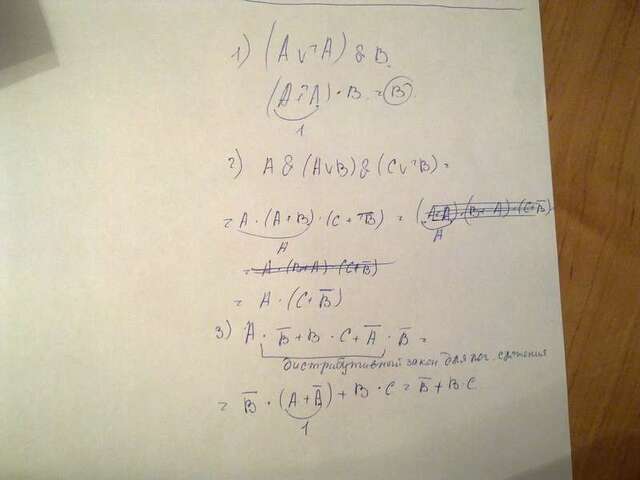 1) (A ∨ ¬A) & B.
(A + A̅) · B = B
1
2) A & (A ∨ B) & (C ∨ ¬B) =
= A · (A + B) · (C + B̅) = (
A
A
= A · (B + A) · (C + B̅)
= A · (C + B̅)
3) A · B̅ + B · C + A̅ · B̅ =
дистрибутивный закон для лог. сложения
= B̅ · (A + A̅) + B · C = B̅ + B · C
1